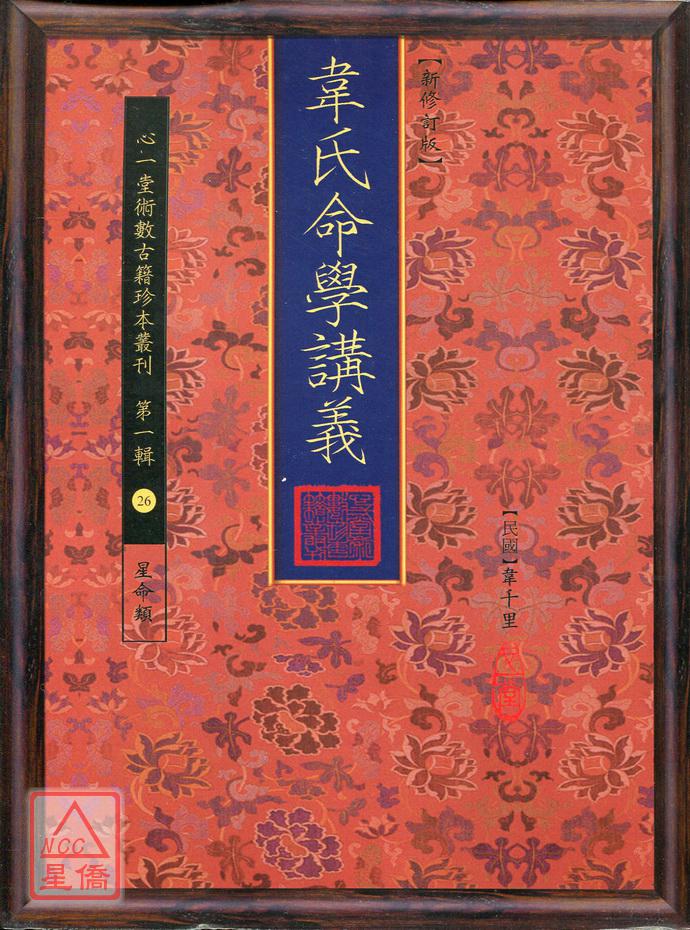 【新修訂版】
韋氏命學講義
【民國】韋千里
心一堂術數古籍珍本叢刊 第一輯
26
星命類
NCC
星僑